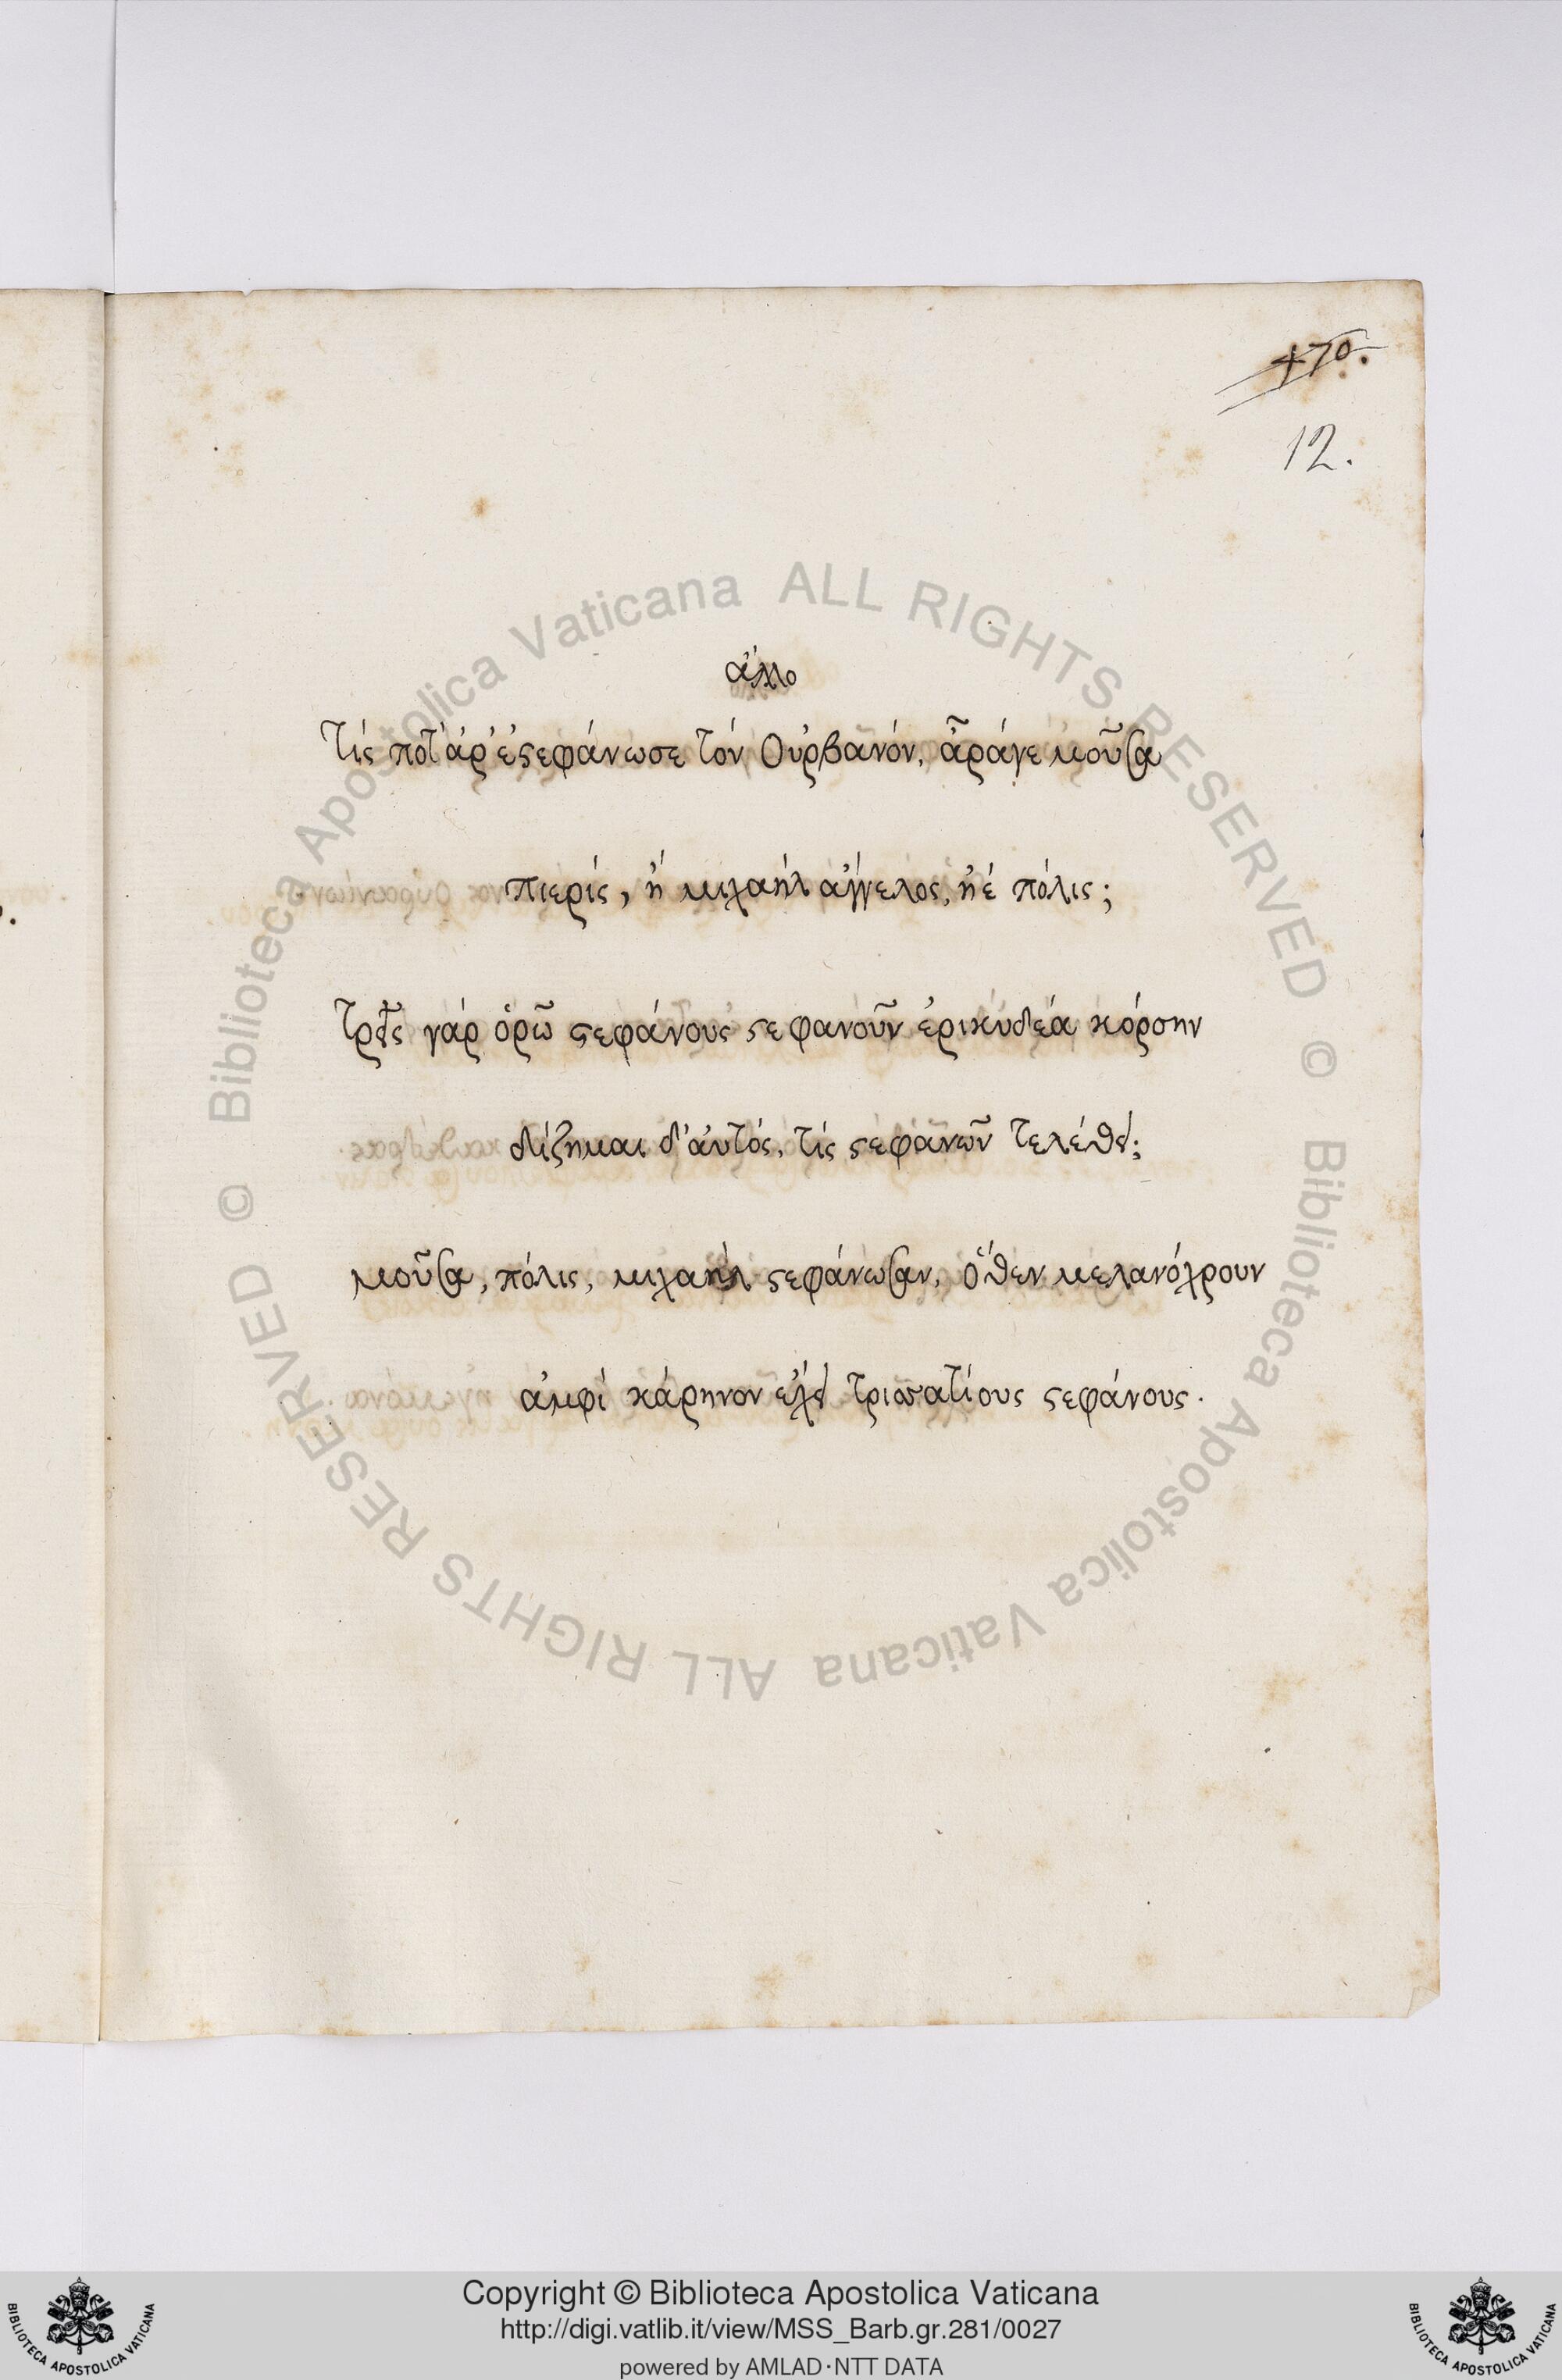 170.
12.
ἄλλο
Τίς ποτ' ἀρ' ἐϛεφάνωσε τόν Οὐρβανόν, ἆράγε μοῦσα
πιερίς, ἤ μιχαήλ ἄγγελος, ἠέ πόλις;
Τρεῖς γάρ ὁρῶ ϛεφάνους ϛεφανοῦν ἐρικυδέα κόρσην
δίζημαι δ' ἀυτός, τίς ϛεφανῶν τελέθει;
μοῦσα, πόλις, μιχαήλ ϛεφάνωσαν, ὅθεν μελανόχρουν
ἀμφί κάρηνον ἔχει τρισσατίους ϛεφάνους.
© Biblioteca Apostolica Vaticana ALL RIGHTS RESERVED
© Biblioteca Apostolica Vaticana ALL RIGHTS RESERVED
Copyright © Biblioteca Apostolica Vaticana
http://digi.vatlib.it/view/MSS_Barb.gr.281/0027
powered by AMLAD·NTT DATA
BIBLIOTECA APOSTOLICA VATICANA
BIBLIOTECA APOSTOLICA VATICANA